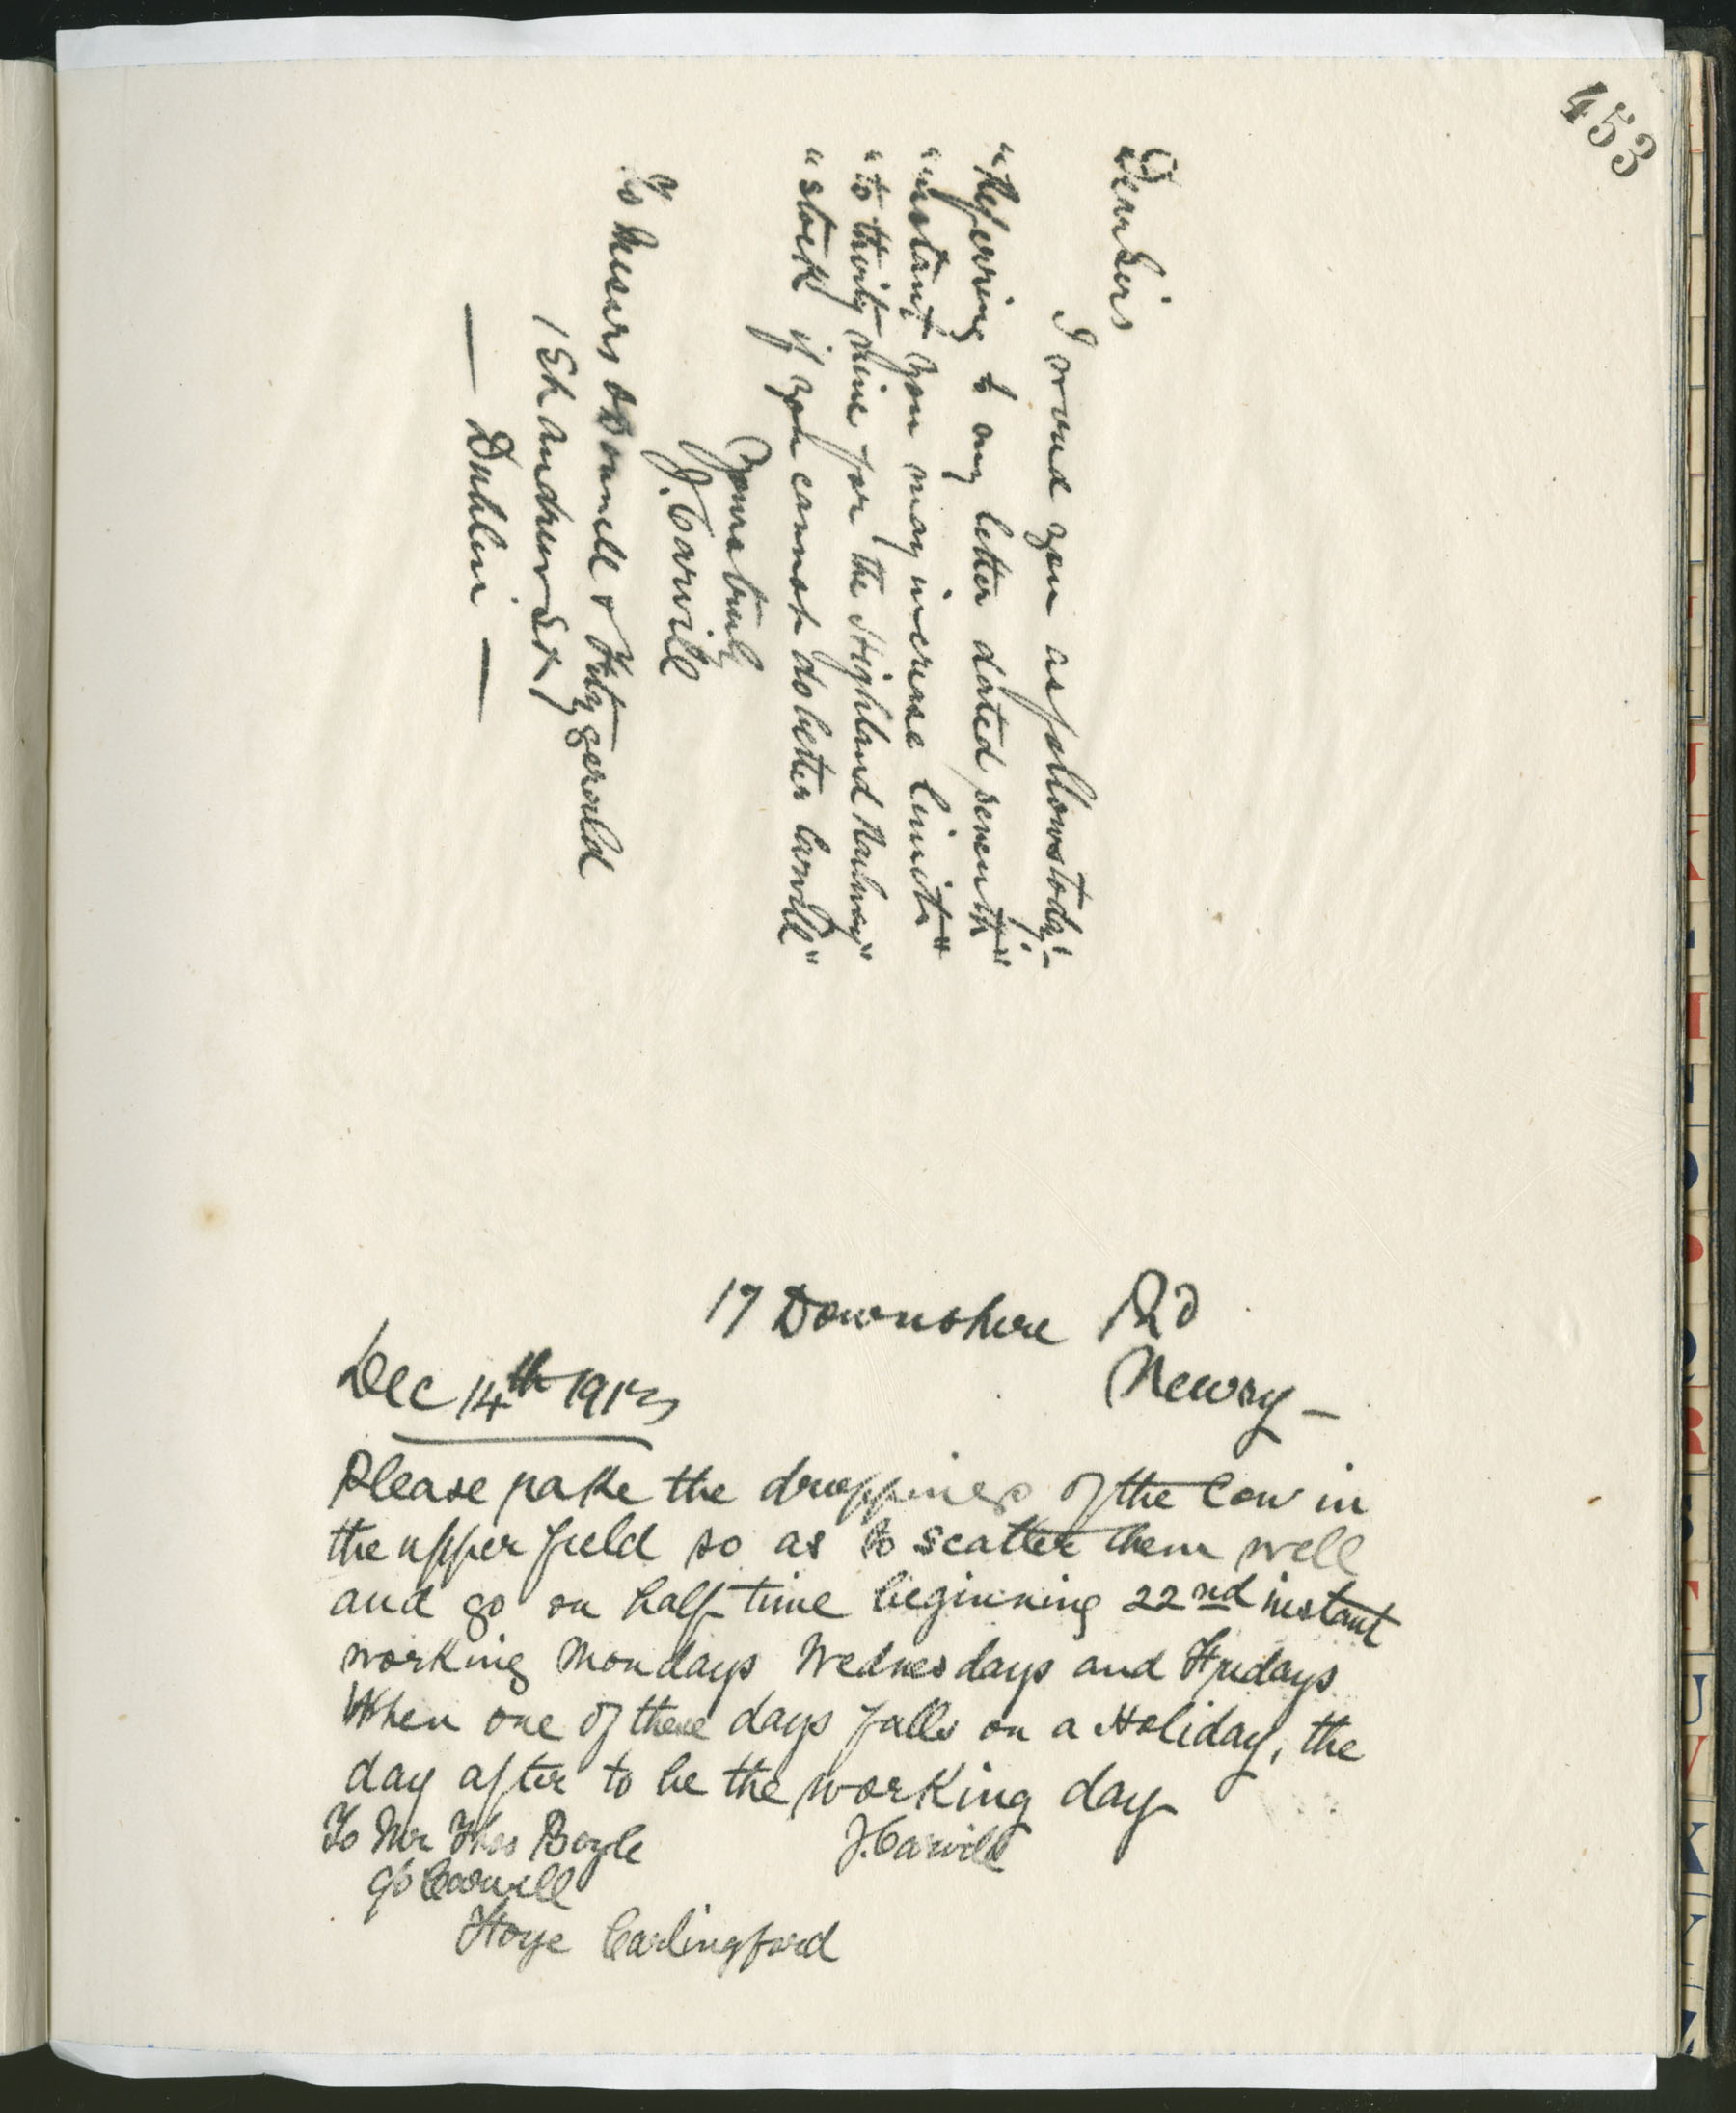 453
Dear Sirs
I wired you as follows today:-
"Referring to my letter dated seventh"
"instant you may increase limit"
"to thirty nine for the Highland Railway"
"stock if you cannot do better Carvill"
Yours truly
J. Carvill
To Messrs O'Donnell & Fitzgerald
1 St Andrew St
— Dublin —
17 Downshire Rd
Newry -
Dec 14th 1913
Please rake the droppings of the Cow in
the upper field so as to scatter them well
and go on half time beginning 22nd instant
working Mondays Wednesdays and Fridays
When one of these days falls on a Holiday, the
day after to be the working day
To Mr Thos Boyle
J. Carvill
c/o Carvill
Carlingford